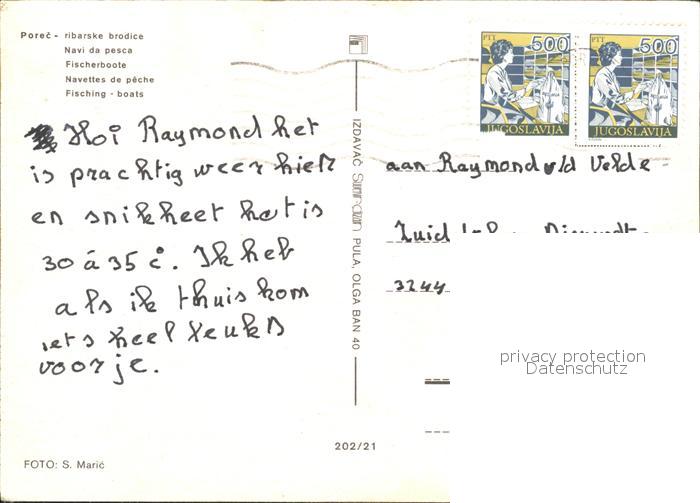 Poreč - ribarske brodice
Navi da pesca
Fischerboote
Navettes de pêche
Fisching - boats
PTT 500
JUGOSLAVIJA
PTT 500
JUGOSLAVIJA
Hoi Raymond het
is prachtig weer hier
en snikheet het is
30 á 35 c. Ik heb
als ik thuis kom
iets heel leuks
voor je.
IZDAVAČ PULA, OLGA BAN 40
aan Raymond v/d Velde
Zuid
3244
privacy protection
Datenschutz
202/21
FOTO: S. Marić